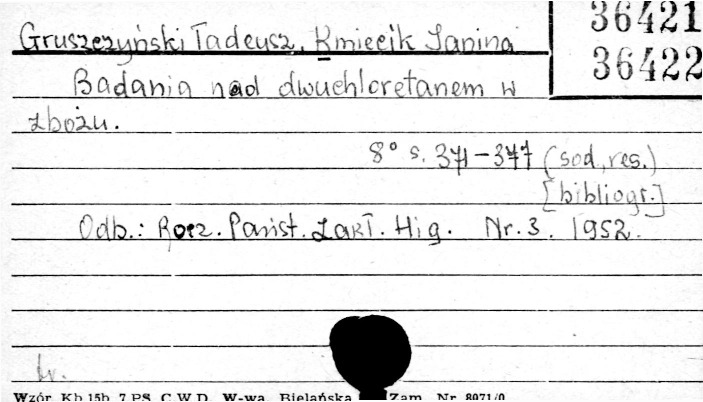 36421
36422
Gruszczyński Tadeusz, Kmiecik Janina
Badania nad dwuchloretanem w
zbożu.
8° s. 371-377 (sod, res.)
[bibliogr.]
Odb.: Rocz. Państ. Zakł. Hig. Nr. 3. 1952.
Wzór. Kb 15b 7 PS C.W.D. W-wa, Bielańska Zam. Nr. 8071/0